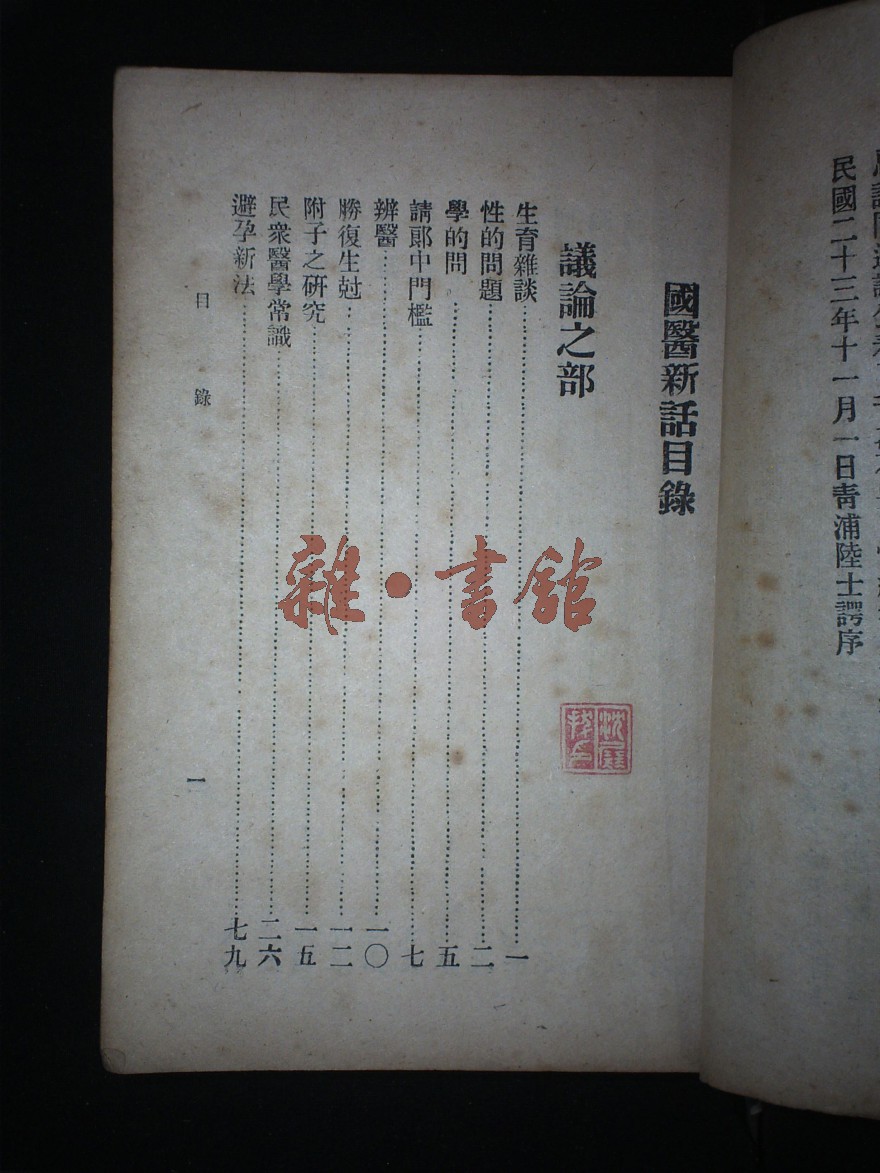 民國二十三年十一月一日青浦陸士諤序
國醫新話目錄
議論之部
生育雜談……一
性的問題……二
學的問……五
請郞中門檻……七
辨醫……一〇
勝復生尅……一二
附子之研究……一五
民衆醫學常識……二六
避孕新法……七九
目錄
一
雜·書館